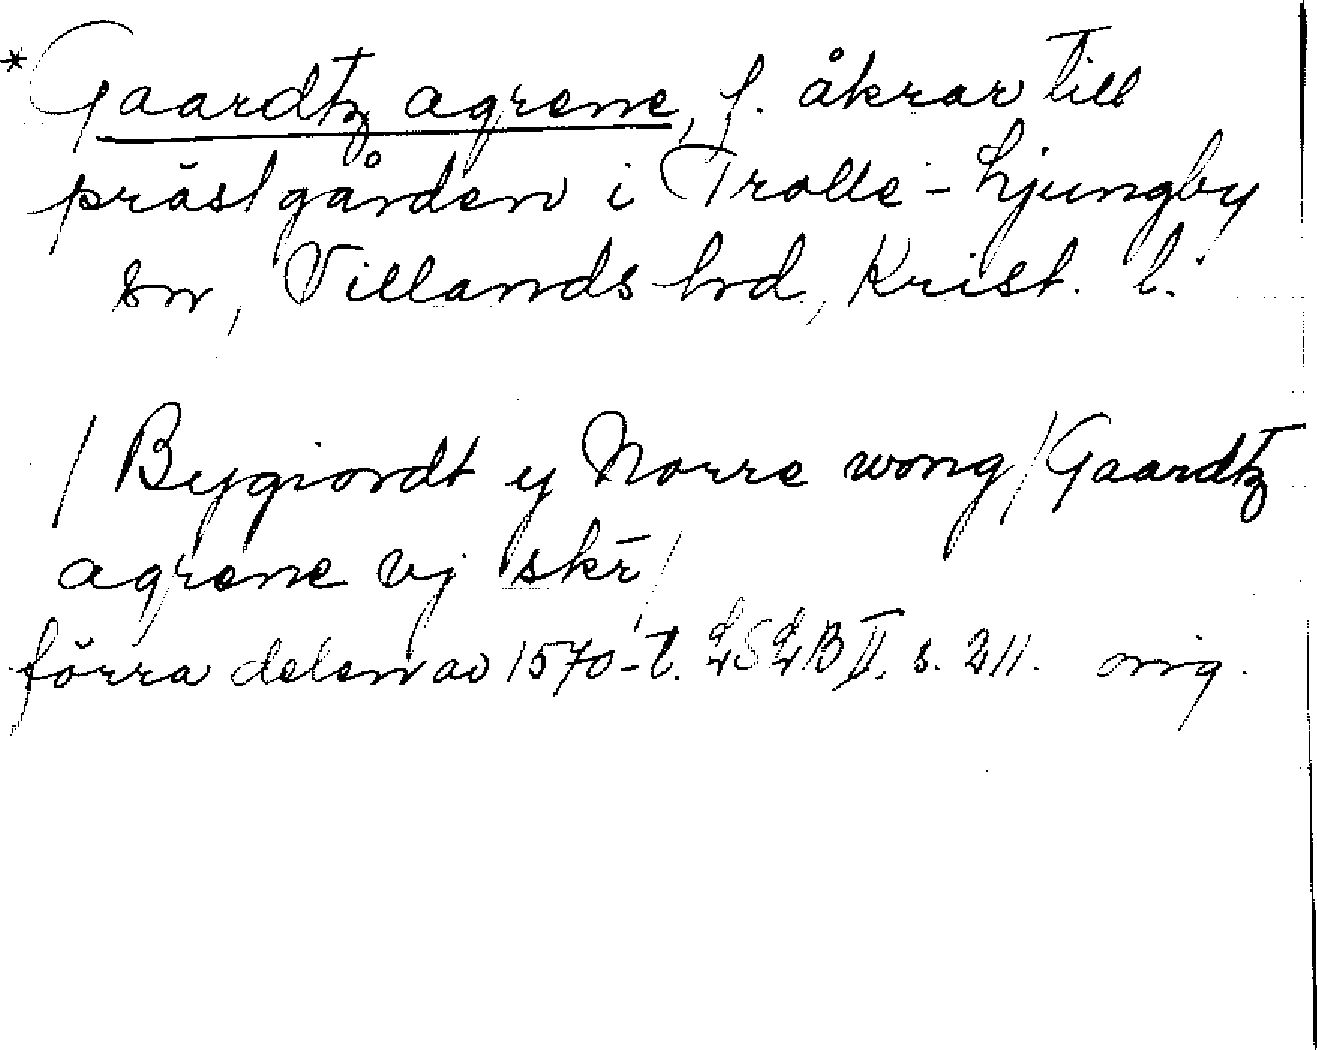 * Gaardtz agrene, f. åkrar till
prästgården i Trolle-Ljungby
sn, Villands hd, Krist. l.
/ Bygiordt y Norre wong / Gaardtz
agrene vj skr̄ /
förra delen av 1570-t. LSLB II. s. 211. orig.